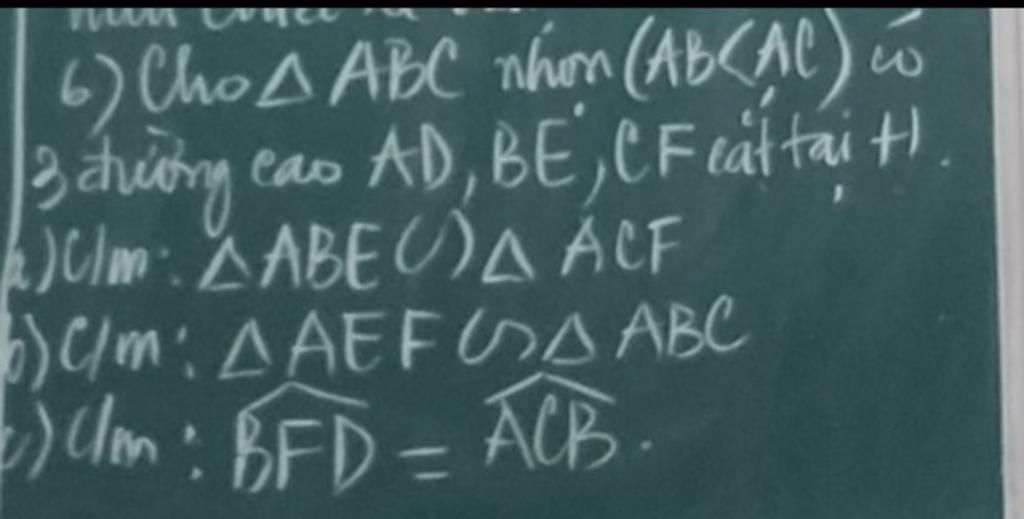 6) Cho Δ ABC nhọn (AB<AC) có
3 đường cao AD, BE, CF cắt tại H.
a) C/m: Δ ABE ∽ Δ ACF
b) C/m: Δ AEF ∽ Δ ABC
c) C/m: \widehat{BFD} = \widehat{ACB}.